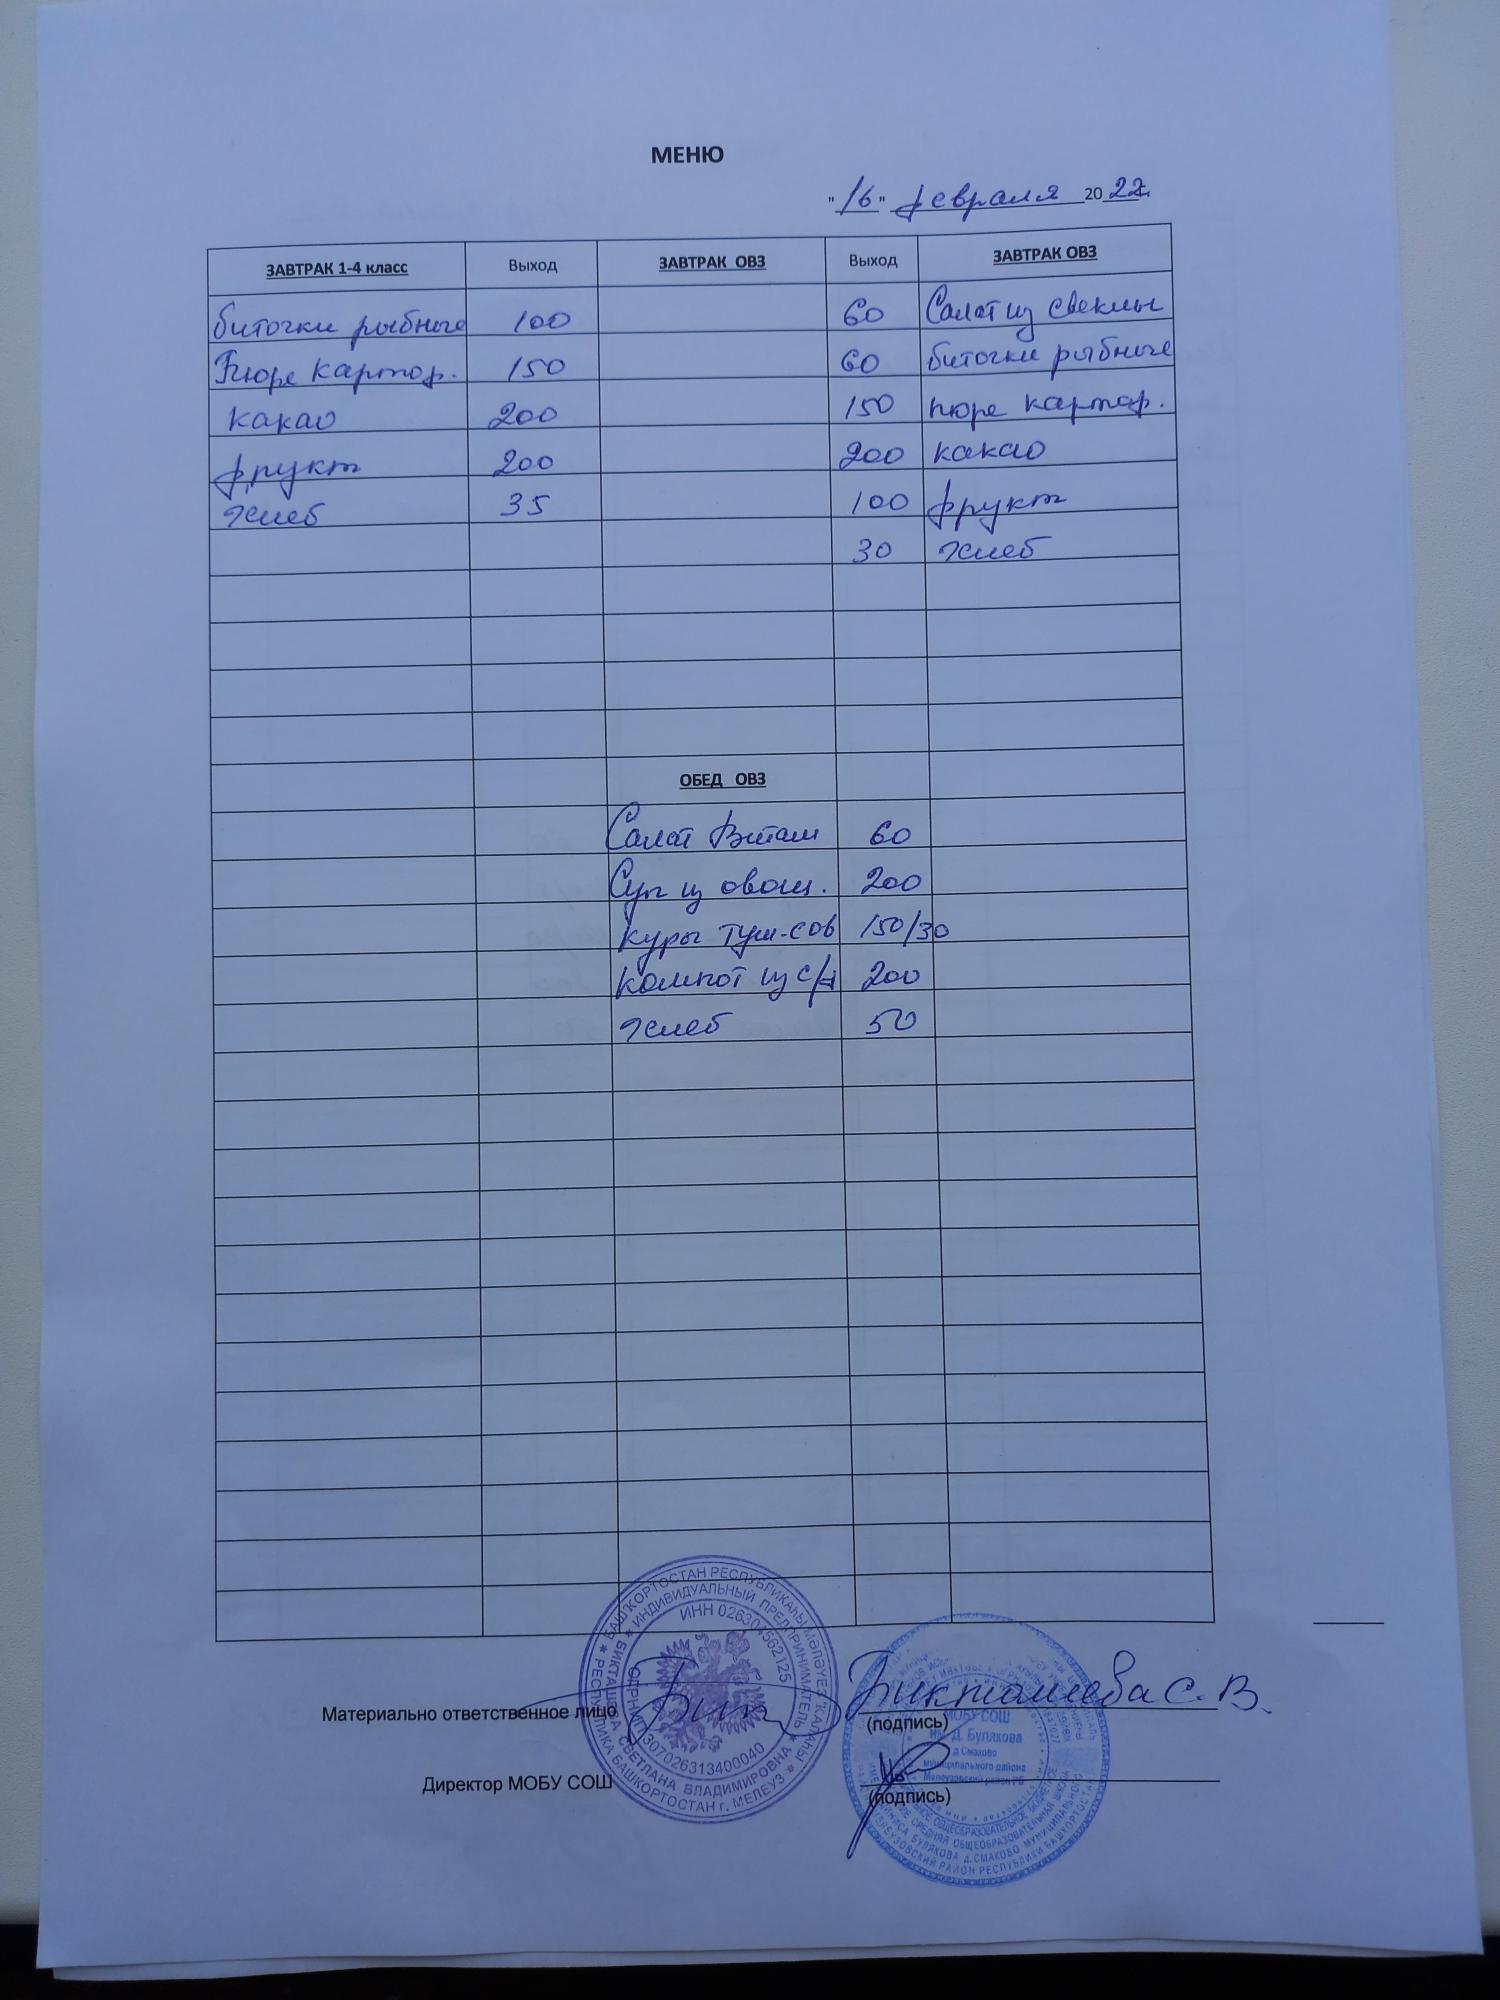 МЕНЮ
"16" февраля 2022г.
ЗАВТРАК 1-4 класс Выход ЗАВТРАК ОВЗ Выход ЗАВТРАК ОВЗ
биточки рыбные 100 60 Салат из свеклы
Пюре картоф. 150 60 биточки рыбные
какао 200 150 пюре картоф.
фрукт 200 200 какао
хлеб 35 100 фрукт
30 хлеб
ОБЕД ОВЗ
Салат Витам 60
Суп из овощ. 200
куры туш-сов 150/30
компот из с/ф 200
хлеб 50
Материально ответственное лицо Бикташева С. В.
(подпись)
Директор МОБУ СОШ
(подпись)
БАШҠОРТОСТАН РЕСПУБЛИКАҺЫ МӘЛӘҮЕЗ ҠАЛАҺЫ
РЕСПУБЛИКА БАШКОРТОСТАН г. МЕЛЕУЗ
ИНДИВИДУАЛЬНЫЙ ПРЕДПРИНИМАТЕЛЬ
БИКТАШЕВА СВЕТЛАНА ВЛАДИМИРОВНА
ИНН 026304562125
ОГРНИП 307026313400040
МОБУ СОШ
им. Д. Булякова
д.Смаково
муниципального района
Мелеузовский район РБ